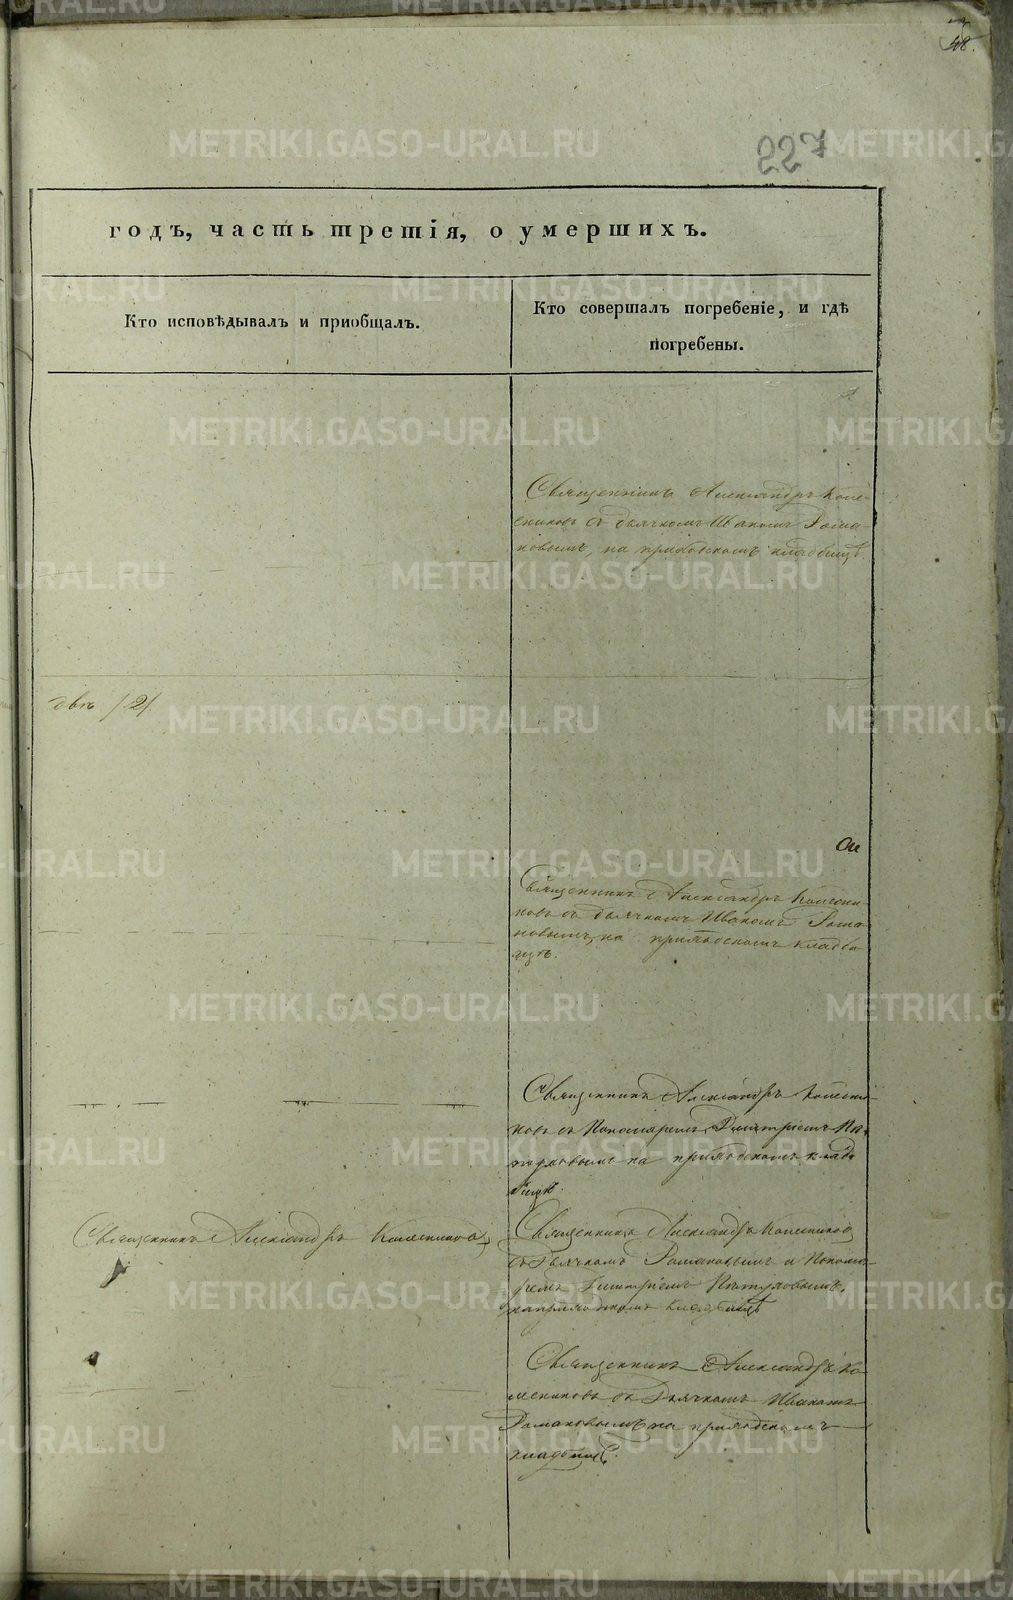 48.
227
годъ, часть третія, о умершихъ.
Кто исповѣдывалъ и приобщалъ.
Кто совершалъ погребеніе, и гдѣ
погребены.
Священникъ Александръ Колес-
никовъ съ дьячкомъ Иваномъ Рома-
новымъ, на приходскомъ кладбищѣ.
двѣ /2/.
Священникъ Александръ Колесни-
ковъ съ дьячкомъ Иваномъ Рома-
новымъ, на приходскомъ кладби-
щѣ.
Священникъ Александръ Колесни-
ковъ съ Пономаремъ Димитріемъ
на приходскомъ кладби-
щѣ.
Священникъ Александръ Колесниковъ
Священникъ Александръ Колесниковъ
съ Дьячкомъ Романовымъ и Понома-
ремъ Димитріемъ
на приходскомъ кладбищѣ
Священникъ Александръ Ко-
лесниковъ съ Дьячкомъ Иваномъ
Романовымъ на приходскомъ
кладбищѣ.
METRIKI.GASO-URAL.RU